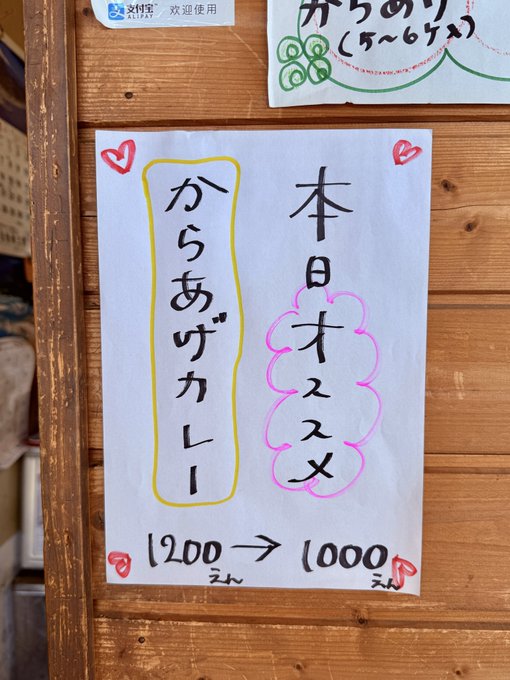 支付宝™ 欢迎使用
ALIPAY
からあげ
(5~6ケ入)
本日オススメ
からあげカレー
1200えん→1000えん